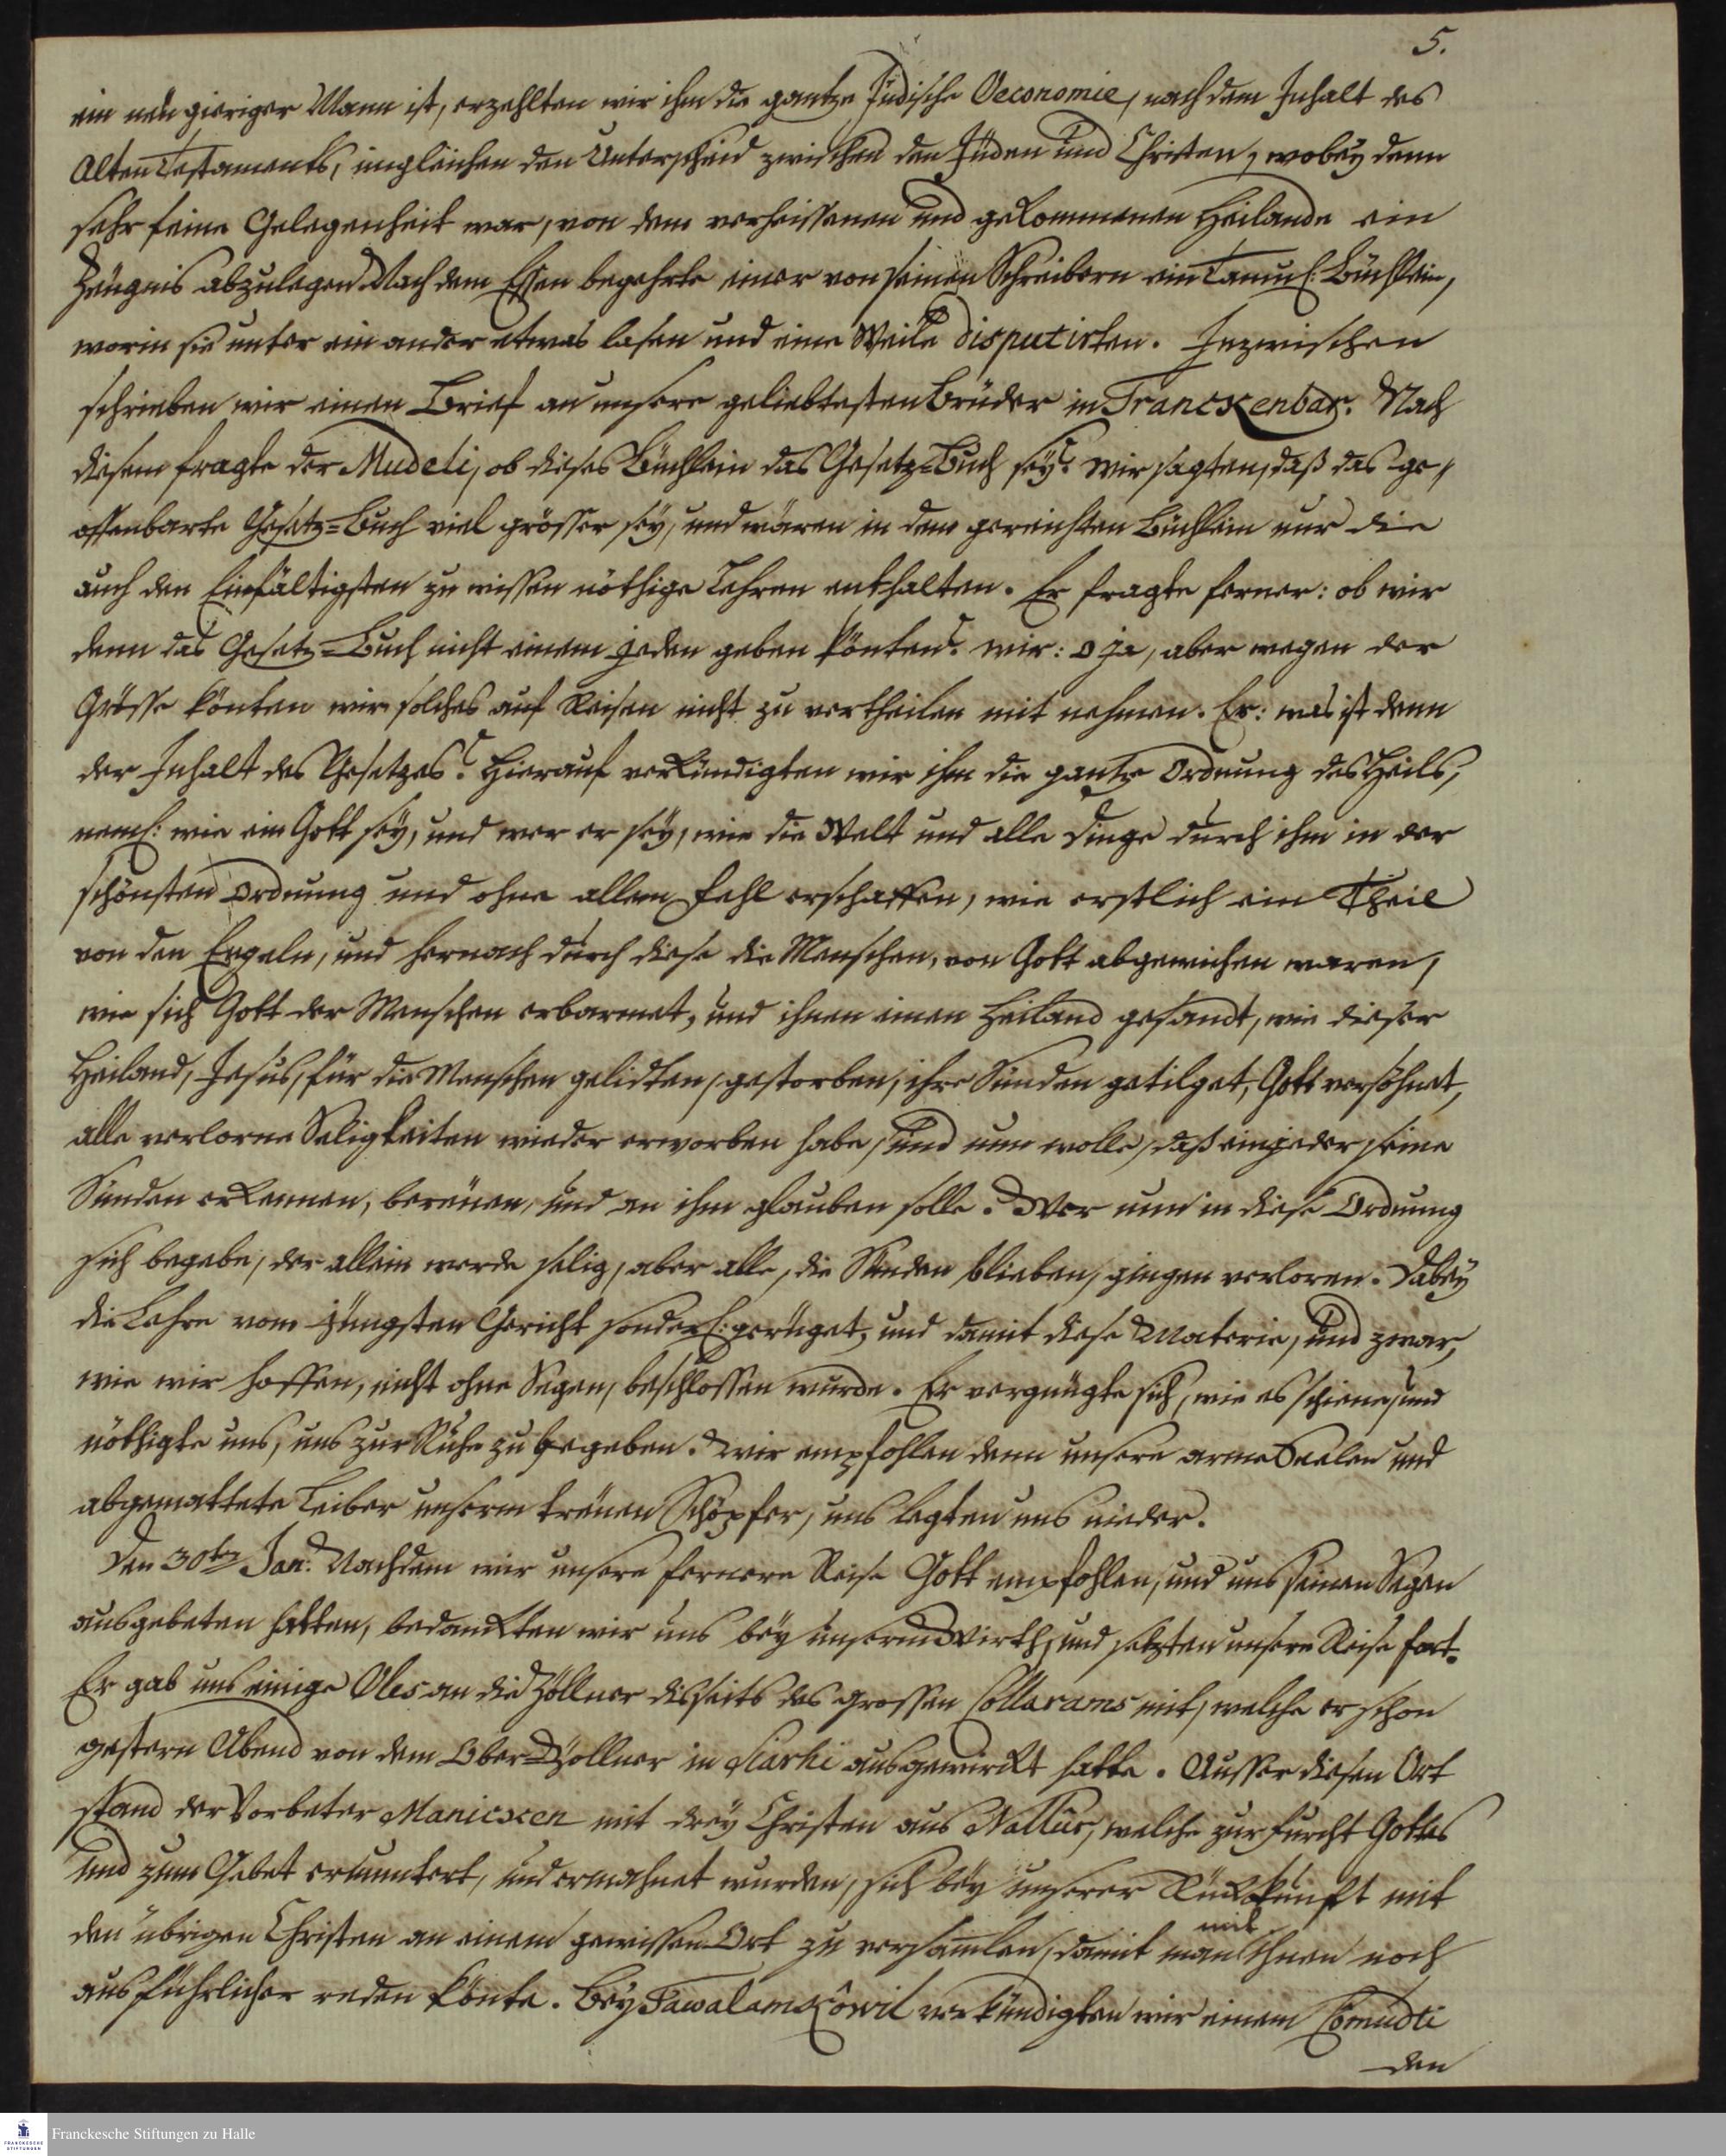 5.
ein neugieriger Mann ist, erzehlten wir ihm die gantze Jüdische Oeconomie, nach dem Inhalt des
Alten Testaments, imgleichen den Unterscheid zwischen den Jüden und Christen, wobey denn
sehr feine Gelegenheit war, von dem verheissenen und gekommenen Heilande ein
Zeugnis abzulegen. Nach dem Essen begehrte einer von seinen Schreibern ein Tamul: Büchlein,
worin sie unter ein ander etwas lasen und eine Weile disputirten. Inzwischen
schrieben wir einen Brief an unsere geliebtesten Brüder in Tranckenbar. Nach
diesem fragte der Mudeli, ob dieses Büchlein das Gesetz-Buch sey? wir sagten, daß das ge-
offenbarte Gesetz-Buch viel grösser sey, und wären in dem gereichten Büchlein nur die
auch den Einfältigsten zu wissen nöthige Lehren enthalten. Er fragte ferner: ob wir
denn das Gesetz-Buch nicht einem jeden geben könten? wir: o ja, aber wegen der
Grösse könten wir solches auf Reisen nicht zu vertheilen mit nehmen. Er: was ist denn
der Inhalt des Gesetzes? Hierauf verkündigten wir ihm die gantze Ordnung des Heils,
neml: wie ein Gott sey, und wer er sey, wie die Welt und alle Dinge durch ihm in der
schönsten Ordnung und ohne allem Fehl erschaffen, wie erstlich ein Theil
von den Engeln, und hernach durch diese die Menschen, von Gott abgewichen waren,
wie sich Gott der Menschen erbarmet, und ihnen einen Heiland gesandt, wie dieser
Heiland, Jesus, für die Menschen gelidten, gestorben, ihre Sünden getilget, Gott versöhnet,
alle verlorne Seligkeiten wieder erworben habe, und nun wolle, daß ein jeder seine
Sünden erkennen, bereuen, und an ihm glauben solle. Wer nun in diese Ordnung
sich begebe, der allein werde selig, aber alle, die Sünden blieben, gingen verloren. Dabey
die Lehre vom jüngsten Gericht sonderl: gerüget, und damit diese Materie, und zwar,
wie wir hoffen, nicht ohne Segen, beschlossen wurde. Er vergnügte sich, wie es schiene, und
nöthigte uns, uns zur Ruhe zu begeben. Wir empfohlen denn unsere arme Seelen und
abgemattete Leiber unserm treuen Schöpfer, uns legten uns nieder.
Den 30ten Jan: Nachdem wir unsere fernere Reise Gott empfohlen, und uns seinen Segen
ausgebeten hatten, bedanckten wir uns bey unserm Wirth, und setzten unsere Reise fort.
Er gab uns einige Oles an die Zöllner disseits des grossen Collarams mit, welche er schon
gestern Abend von dem Ober-Zöllner in Siarhi ausgewirckt hatte. Ausser diesen Ort
stand der Vorbeter Manicken mit drey Christen aus Nallur, welche zur Furcht Gottes
und zum Gebet ermuntert, und ermahnet wurden, sich bey unserer Rückkunft mit
den übrigen Christen an einem gewissen Ort zu versamlen, damit man mit ihnen noch
ausführlicher reden könte. Bey Tawalamcôwil verkündigten wir einem Comudti
den
Franckesche Stiftungen zu Halle